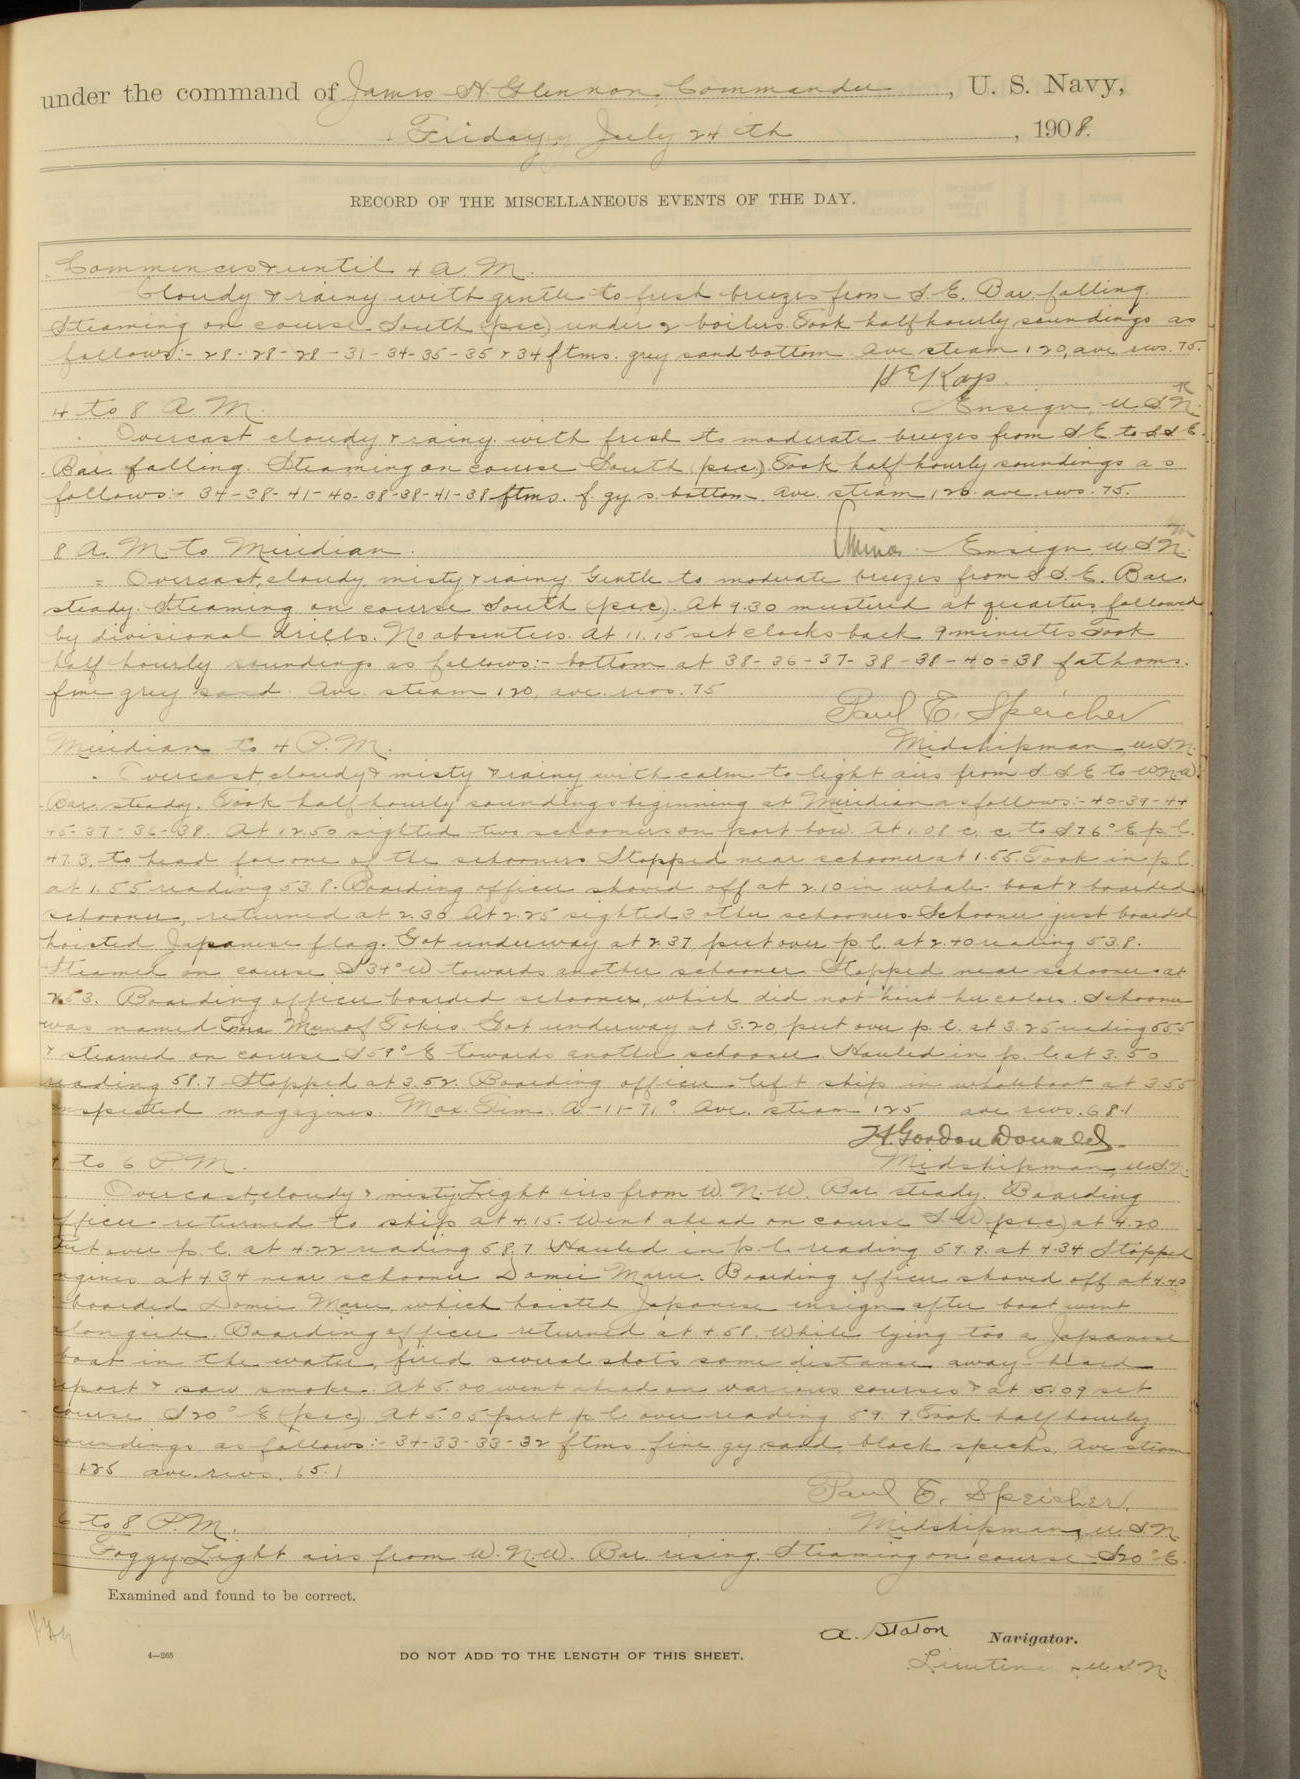 under the command of James H Glennon, Commander, U. S. Navy,
Friday, July 24th, 1908.
RECORD OF THE MISCELLANEOUS EVENTS OF THE DAY.
Commences & until 4 A. M.
Cloudy & rainy with gentle to fresh breezes from S. E. Bar falling
Steaming on course South (psc) under 2 boilers. Took half hourly soundings as
follows:- 28-28-28-31-34-35-35 & 34 ftms. grey sand bottom. Ave steam 120, ave revs. 75.
H E Kays
4 to 8 A. M. Ensign, U.S.N.
Overcast cloudy & rainy with fresh to moderate breezes from S E to S S E.
Bar. falling. Steaming on course South (psc.) Took half hourly soundings as
follows:- 34-38-41-40-38-38-41-38 ftms. f. gy s. bottom. Ave. steam 120. ave revs. 75.
8 A. M. to Meridian. Ensign, U.S.N.
Overcast, cloudy, misty & rainy. Gentle to moderate breezes from S S. E. Bar.
steady. Steaming on course South (psc). At 9.30 mustered at quarters followed
by divisional drills. No absentees. At 11.15 set clocks back 9 minutes. Took
half hourly soundings as follows:- bottom at 38-36-37-38-38-40-38 fathoms.
fine grey sand. Ave. steam 120, ave. revs. 75
Paul E. Speicher
Meridian to 4 P. M. Midshipman, U.S.N.
Overcast, cloudy & misty & rainy with calm to light airs from S S E to WNW.
Bar. steady. Took half hourly soundings beginning at Meridian as follows:- 40-39-44
45-37-36-38. At 12.50 sighted two schooners on port bow. At 1.08 c. c. to S 76° E p. l.
47.3. to head for one of the schooners. Stopped near schooner at 1.55. Took in p. l.
at 1.55 reading 53.8. Boarding officer shoved off at 2.10 in whale-boat & boarded
schooner, returned at 2.30. At 2.25 sighted 3 other schooners. Schooner just boarded
hoisted Japanese flag. Got underway at 2.37, put over p. l. at 2.40 reading 53.8.
Steamed on course S 34° W towards another schooner. Stopped near schooner at
2.53. Boarding officer boarded schooner, which did not hoist her colors. Schooner
was named Tora Maru of Tokio. Got underway at 3.20, put over p. l. at 3.25 reading 55.5
& steamed on course S 59° E towards another schooner. Hauled in p. l. at 3.50
reading 58.7. Stopped at 3.52. Boarding officer left ship in whaleboat at 3.55
Inspected magazines. Max. Tem. A-11-71°. Ave. steam 125 ave revs. 68.1
H. Gordon Donald
to 6 P. M. Midshipman, U.S.N.
Overcast, cloudy & misty. Light airs from W. N. W. Bar steady. Boarding
fficer returned to ship at 4.15. Went ahead on course S. W. (psc) at 4.20
Put over p. l. at 4.22 reading 58.7. Hauled in p. l. reading 59.9. at 4.34. Stopped
ngines at 4.34 near schooner Domei Maru. Boarding officer shoved off at 4.40
boarded Domei Maru, which hoisted Japanese ensign after boat went
alongside. Boarding officer returned at 4.58. While lying too a Japanese
boat in the water, fired several shots some distance away - heard
report & saw smoke. At 5.00 went ahead on various courses & at 5.09 set
course S 20° E (psc). At 5.05 put p. l. over reading 59.9. Took half hourly
soundings as follows:- 34-33-33-32 ftms. fine gy sand, black specks. Ave steam
125 ave. revs. 65.1
Paul E. Speicher.
6 to 8 P. M. Midshipman, U.S.N.
Foggy. Light airs from W. N. W. Bar rising. Steaming on course S 20° E.
Examined and found to be correct.
A. Staton Navigator.
4—265
DO NOT ADD TO THE LENGTH OF THIS SHEET.
U.S.N.